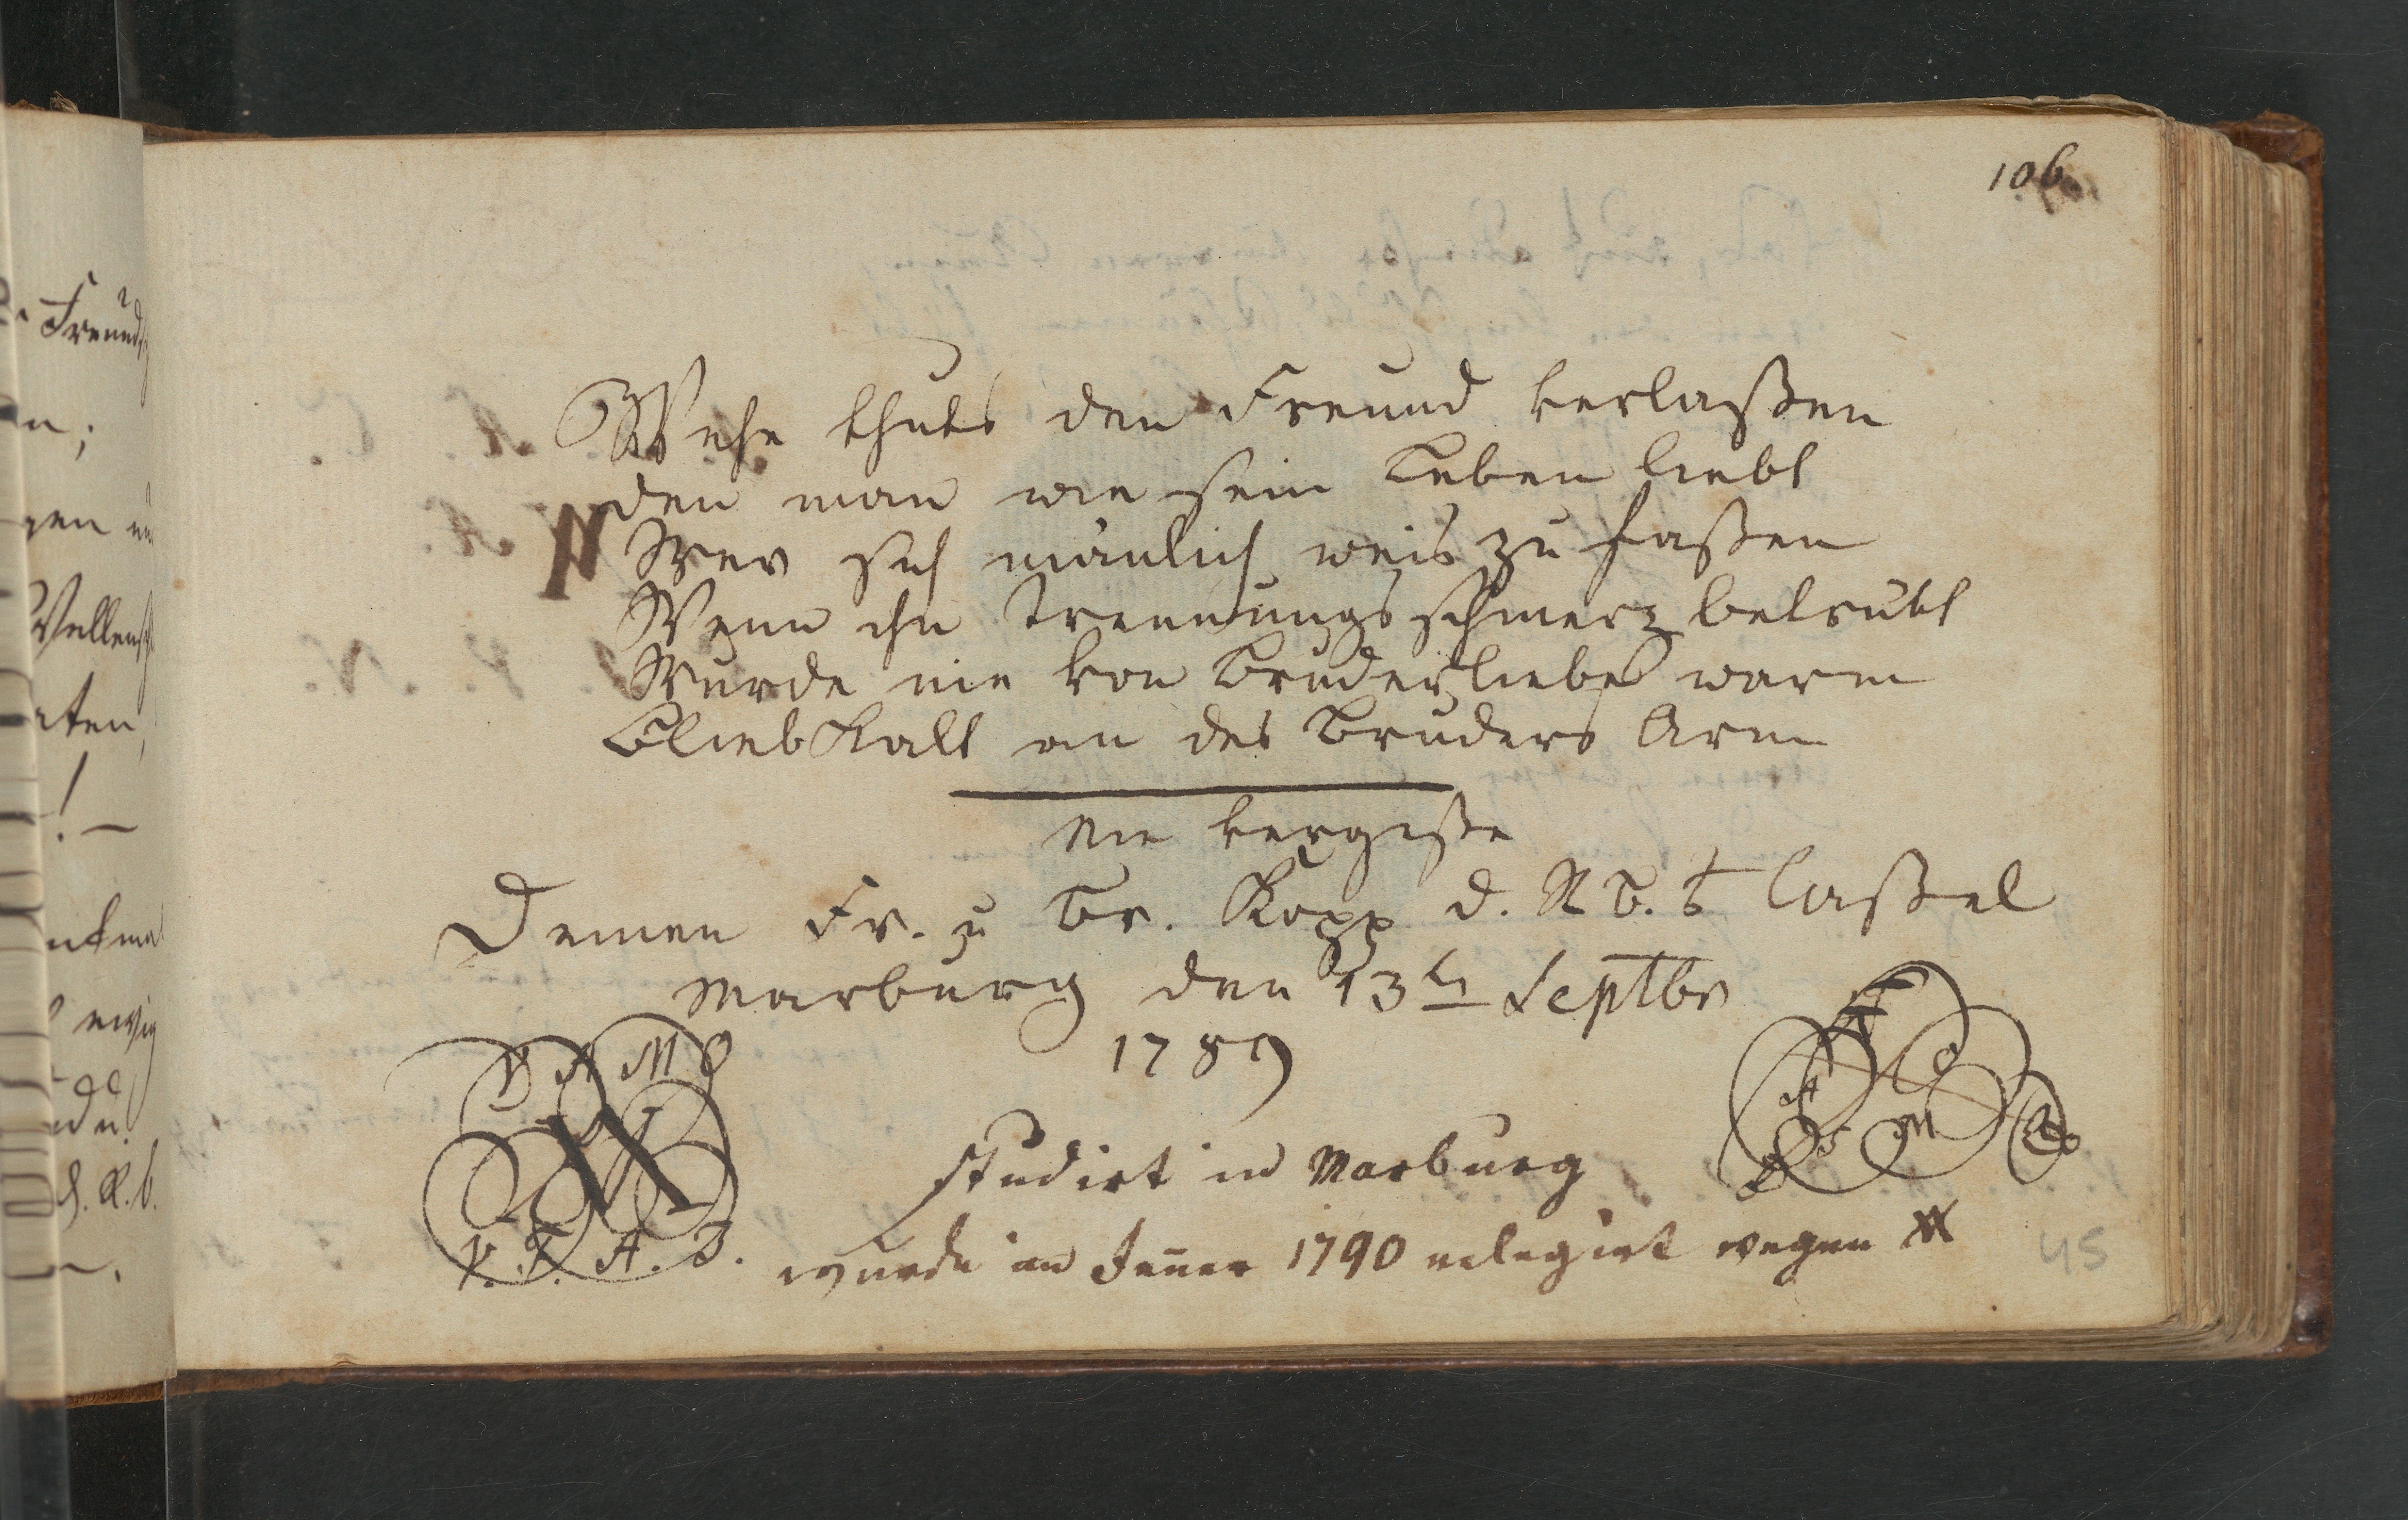 106
Wehe thuts den Freund verlaßen
den man wie sein Leben liebt
Wer sich mänlich weis zu faßen
Wenn ihn Trennungsschmerz betrübt
Wurde nie von Bruderliebe warm
Blieb Kalt an des Bruders Arm
Nie vergiße
Deinen Fr. u Br. Kopp d. R. B. Caßel
Marburg den 13tn Septbr
1789
V A M O
V. F. A. J.
studirt in Marburg
wurde im Jenner 1790 relegirt wegen
45